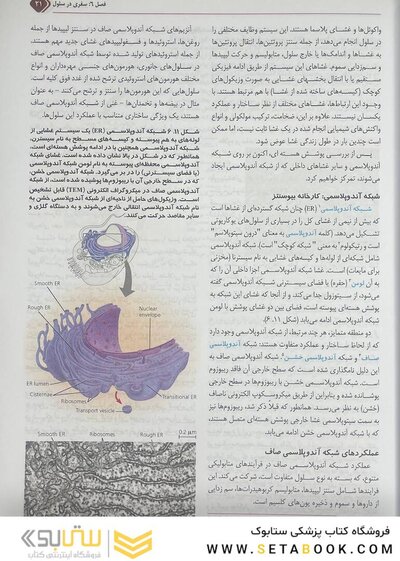 فصل ۶: سفری در سلول
۲۱
واکوئل‌ها و غشای پلاسما هستند. این سیستم وظایف مختلفی را
در سلول انجام می‌دهد، از جمله سنتز پروتئین‌ها، انتقال پروتئین‌ها
به غشاها و اندامک‌ها یا خارج سلول، متابولیسم و حرکت لیپیدها
و سم‌زدایی سموم. غشاهای این سیستم از طریق ادامه فیزیکی
مستقیم یا با انتقال بخشهای غشایی به صورت وزیکول‌های
کوچک (کیسه‌های ساخته شده از غشا) با هم مرتبط هستند. با
وجود این ارتباط‌ها، غشاهای مختلف از نظر ساختار و عملکرد
یکسان نیستند. علاوه بر این، ضخامت، ترکیب مولکولی و انواع
واکنش‌های شیمیایی انجام شده در یک غشا ثابت نیست، اما ممکن
است چندین بار در طول زندگی غشا عوض شود.
پس از بررسی پوشش هسته ای، اکنون بر روی شبکه
آندوپلاسمی و سایر غشاهای داخلی که از شبکه آندوپلاسمی ایجاد
می‌شوند، تمرکز خواهیم کرد.
شبکه آندوپلاسمی: کارخانه بیوسنتز
شبکه آندوپلاسمی (ER) چنان شبکه گسترده‌ای از غشاها است
که بیش از نیمی از غشای کل را در بسیاری از سلول‌های یوکاریوتی
تشکیل می‌دهد. (کلمه آندوپلاسمی به معنای "درون سیتوپلاسم"
است و رتیکولوم" به معنی "شبکه کوچک" است). شبکه آندوپلاسمی
شامل شبکه‌ای از لوله‌ها و کیسه‌های غشایی به نام سیسترنا (مخزنی
برای مایعات) است. غشا شبکه آندوپلاسمی اجزا داخلی آن را که
به آن لومن (حفره) یا فضای سیسترنی شبکه آندوپلاسمی گفته
می‌شود، از سیتوزول جدا می کند. و از آنجا که غشای این شبکه به
پوشش هسته‌ای پیوسته است، فضای بین دو غشای پوشش با لومن
شبکه آندوپلاسمی ادامه می‌یابد (شکل ۱۱.۶).
دو منطقه متمایز، هر چند مرتبط، از شبکه آندوپلاسمی وجود دارد
که از لحاظ ساختار و عملکرد متفاوت هستند: شبکه آندوپلاسمی
صاف و شبکه آندوپلاسمی خشن. شبکه آندوپلاسمی صاف به
این دلیل نامگذاری شده است که سطح خارجی آن فاقد ریبوزوم
است. شبکه آندوپلاسمی خشن با ریبوزوم‌ها در سطح خارجی
پوشانده شده و بنابراین از طریق میکروسکوپ الکترونی ناصاف
(خشن) به نظر می‌رسد. همانطور که قبلا ذکر شد، ریبوزوم‌ها نیز
به سمت سیتوپلاسمی غشا خارجی پوشش هسته‌ای متصل هستند،
که با شبکه آندوپلاسمی خشن ادامه می‌یابد.
عملکردهای شبکه آندوپلاسمی صاف
عملکرد شبکه آندوپلاسمی صاف در فرآیندهای متابولیکی
متنوع، که بسته به نوع سلول متفاوت است، شرکت می کند. این
فرآیندها شامل سنتز لیپیدها، متابولیسم کربوهیدرات‌ها، سم زدایی
از داروها و سموم و ذخیره یون‌های کلسیم است.
آنزیم‌های شبکه آندوپلاسمی صاف در سنتز لیپیدها از جمله
روغن‌ها، استروئیدها و فسفولیپیدهای غشای جدید مهم هستند.
از جمله استروئیدهای تولید شده توسط شبکه آندوپلاسمی صاف
در سلول‌های جانوری، هورمون‌های جنسی مهره‌داران و انواع
مختلف هورمون‌های استروئیدی ترشح شده از غدد فوق کلیه است.
سلول‌هایی که این هورمون‌ها را سنتز و ترشح می‌کنند - به عنوان
مثال در بیضه‌ها و تخمدان‌ها - غنی از شبکه آندوپلاسمی صاف
هستند، یک ویژگی ساختاری متناسب با عملکرد این سلول‌ها.
شکل ۱۱.۶ شبکه آندوپلاسمی (ER) یک سیستم غشایی از
لوله‌های به هم پیوسته و کیسه‌های مسطح به نام سیسترن،
شبکه آندوپلاسمی همچنین با در ادامه پوشش هسته‌ای است،
همانطور که در شکل در بالا نشان داده شده است. غشای شبکه
آندوپلاسمی محفظه‌ای پیوسته به نام لومن شبکه آندوپلاسمی
(یا فضای سیسترنی) را در بر می‌گیرد. شبکه آندوپلاسمی خشن،
که در سطح خارجی آن با ریبوزوم‌ها پوشیده شده است، از شبکه
آندوپلاسمی صاف در میکروگراف الکترونی (TEM) قابل تشخیص
است. وزیکول‌های حامل از ناحیه‌ای از شبکه آندوپلاسمی خشن به
نام شبکه آندوپلاسمی انتقالی خارج می‌شوند و به دستگاه گلژی و
سایر مقاصد حرکت می‌کنند.
Smooth ER
Rough ER
Nuclear
envelope
ER lumen
Cisternae
Ribosomes
Transport vesicle
Transitional ER
Smooth ER
Ribosomes
Rough ER
0.2 µm
فروشگاه کتاب پزشکی ستابوک
WWW.SETABOOK.COM
ستابوک
فروشگاه اینترنتی کتاب